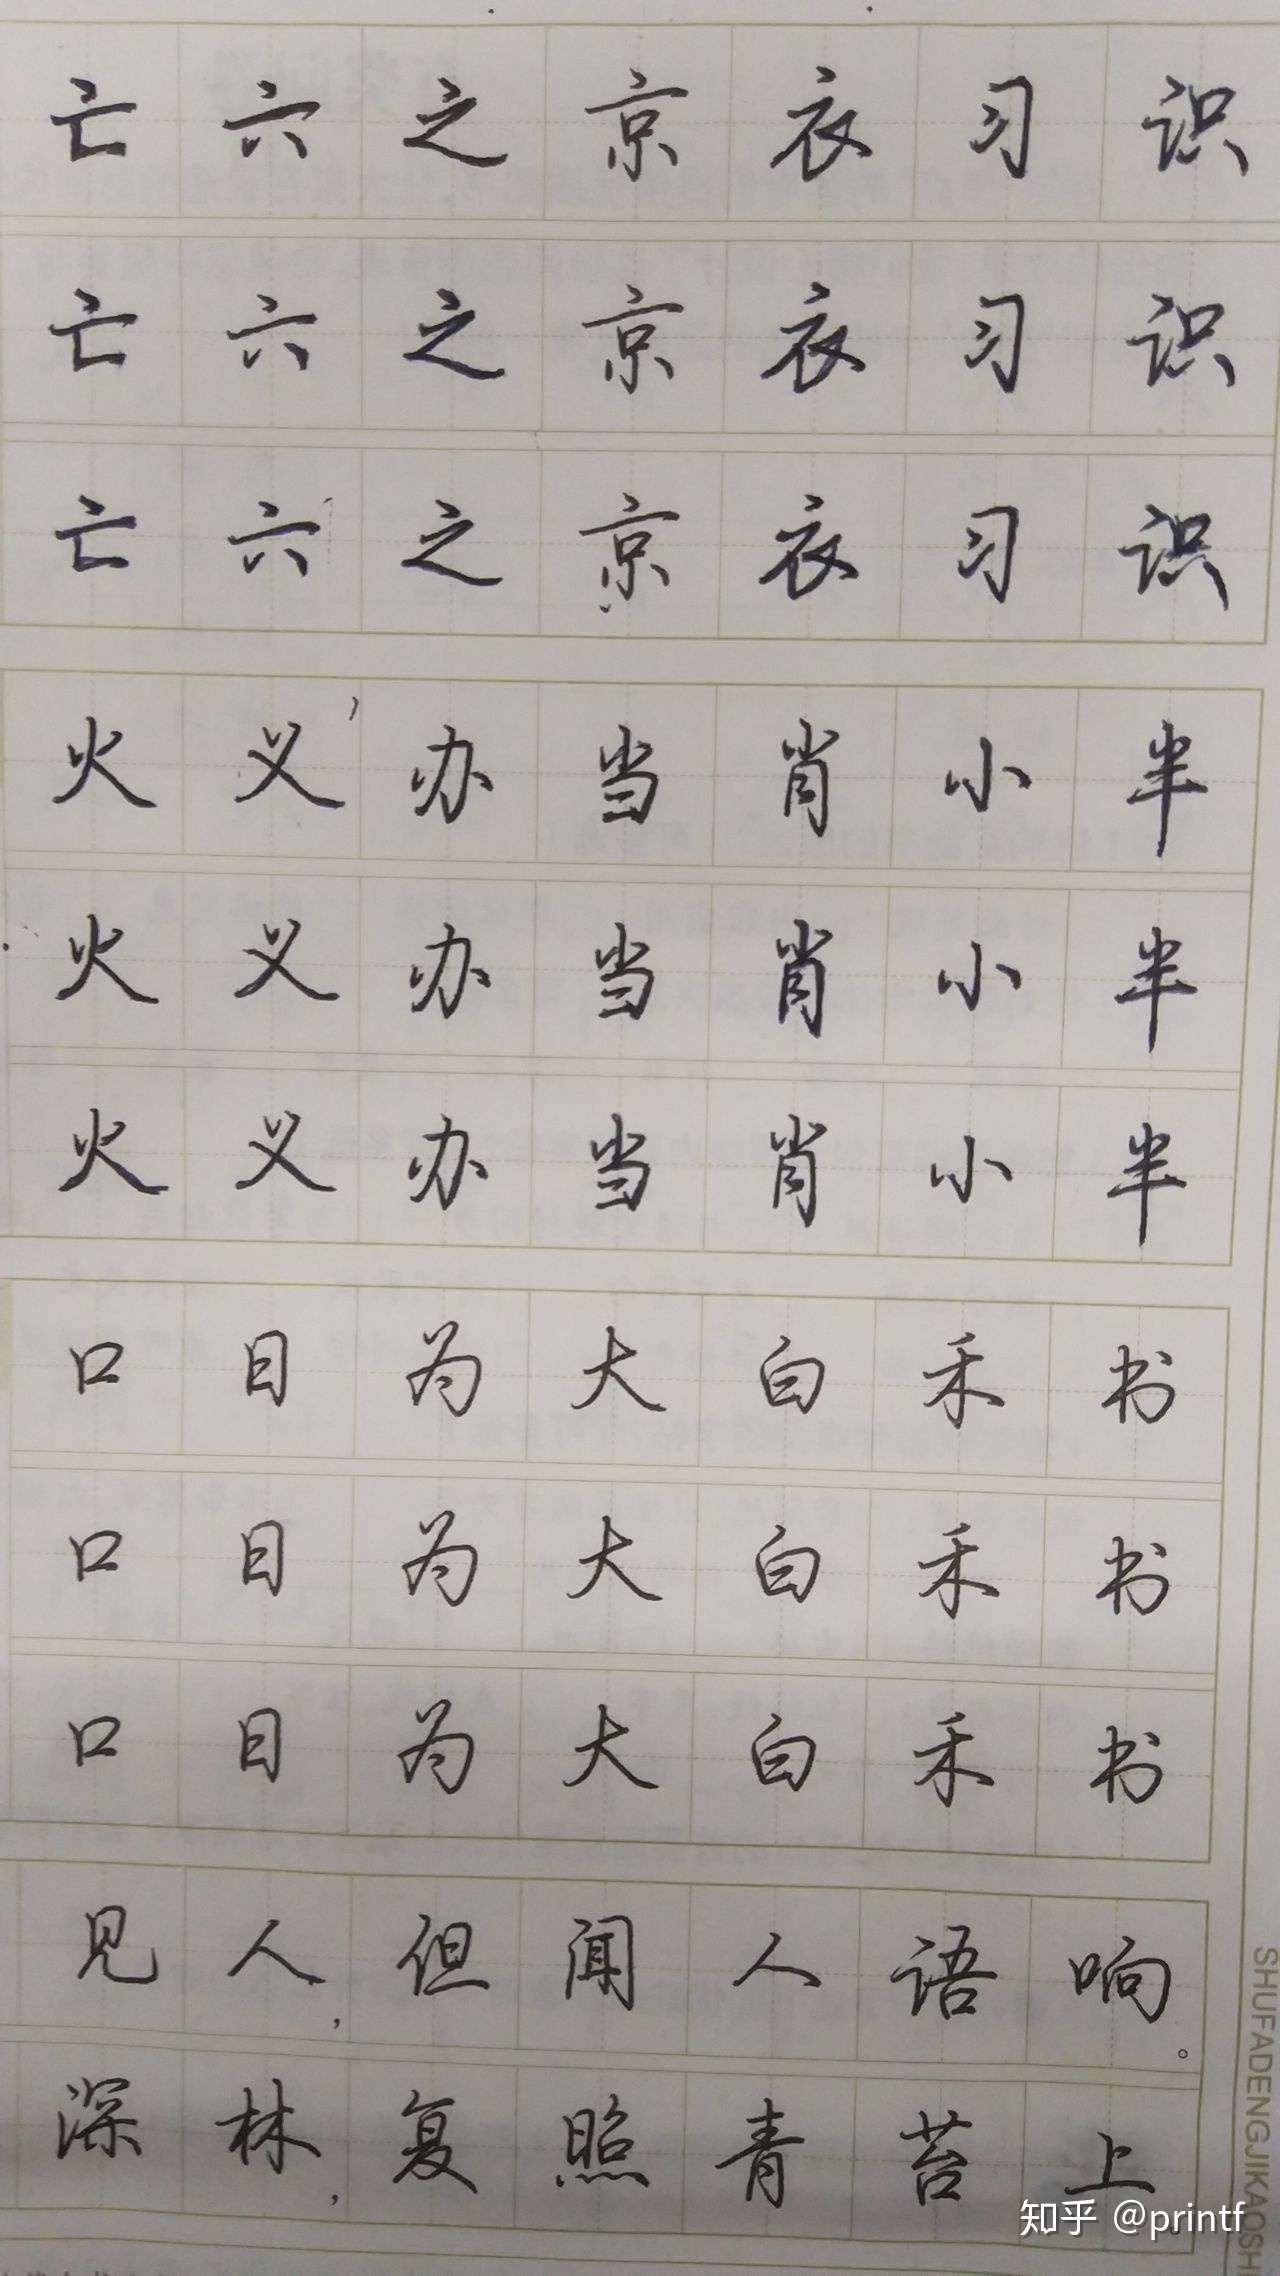 亡六之京衣习识
亡六之京衣习识
亡六之京衣习识
火义办当肖小半
火义办当肖小半
火义办当肖小半
口目为大白禾书
口目为大白禾书
口目为大白禾书
见人，但闻人语响。
深林，复照青苔上
SHUFADENGJIKAOSHI
知乎 @printf